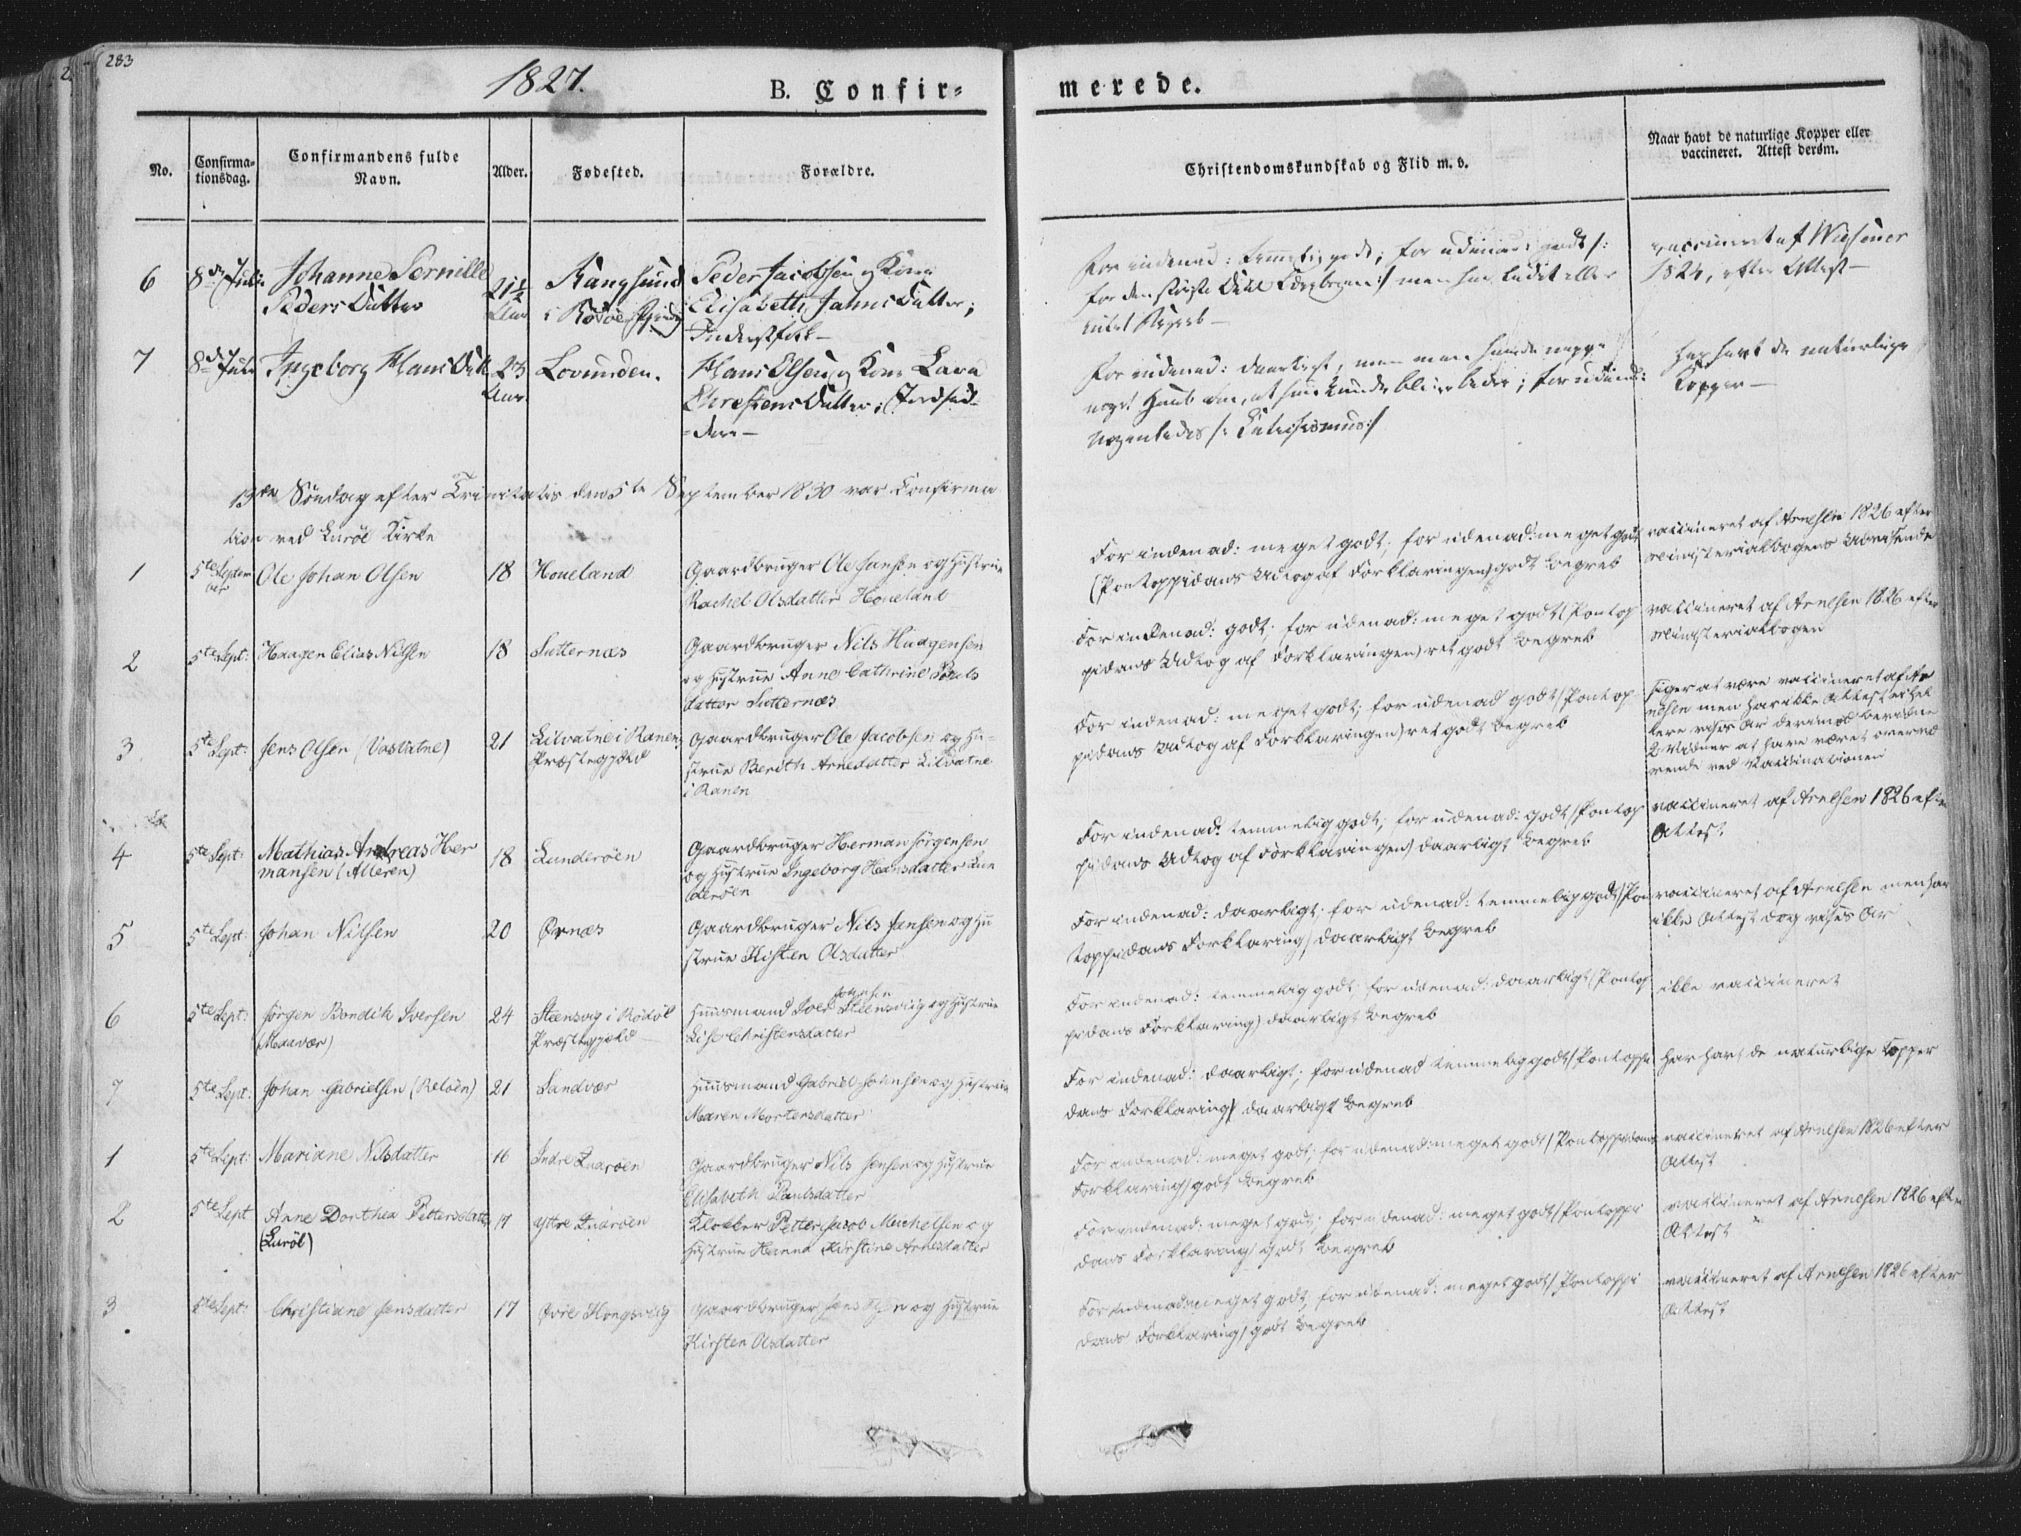 283
1827.
B. Confir=
merede.
No.
Confirma-
tionsdag.
Confirmandens fulde
Navn.
Alder.
Fødested.
Forældre.
Christendomskundskab og Flid m. v.
Naar havt de naturlige Kopper eller
vaccineret. Attest derom.
6
8de Juli
Johanne Pernille
Peders Datter
21½
Aar
Rangsund
i Rødøe
Peder Jacobsen og Kone
Elisabeth Jahns Datter;
Inderstfolk—
For indenad: temmelig godt; for udenad: godt /:
1824, efter Attest—
7
8de Juli
Ingeborg Hans Datt
23
Aar
Lovunden.
Hans Olsen og Kone Lava
Christens Datter; Indsid-
=dere—
For indenad: daarligt, men man havde neppe
noget Haab om, at hun kunde blive bedre; for udenad:
nogenledes /: Catechismus:/
har havt de naturlige
Kopper—
13de Søndag efter Trinitatis den 5te September 1830 var Confirma
tion ved Lurøe Kirke
1
5te Septem
ber
Ole Johan Olsen
18
Hoveland
Gaardbruger Ole Jansen og Hustrue
Rachel Olsdatter Hoveland
For indenad: meget godt; for udenad: meget godt
(Pontoppidans Udtog af Forklaringen) godt Begreb
vaccineret af Arnesen 1826 efter
Ministerialbogens Udvisende
2
5te Sept:
Haagen Elias Nilsen
18
Sutternæs
Gaardbruger Nils Haagensen
og Hustrue Anne Cathrine Pouls
datter Sutternæs
For indenad: godt; for udenad: meget godt (Pontop
pidans Udtog af Forklaringen) ret godt Begreb
vaccineret af Arnesen 1826 efter
Ministerialbogen
3
5te Sept:
Jens Olsen (Vasvatne)
21
Lilvatne i Ranens
Præstegjeld
Gaardbruger Ole Jacobsen og Hu-
strue Berith Arnedatter Lilvatne
i Ranen
For indenad: meget godt; for udenad godt (Pontop
pidans Udtog af Forklaringen) ret godt Begreb
siger at være vaccineret af Ar
nesen men har ikke Attest er hel
lere vises Ar derimod bevidne
2 Vidner at have været overvæ
rende ved Vaccinationen
4
5te Sept:
Mathias Andreas Her
mansen (Alleren)
18
Lunderøen
Gaardbruger Herman Jørgensen
og Hustrue Ingeborg Hansdatter Lun
derøen
For indenad: temmelig godt; for udenad: godt (Pontop
pidans Udtog af Forklaringen) daarligt Begreb
vaccineret af Arnesen 1826 efter
Attest
5
5te Sept:
Johan Nilsen
20
Ørnæs
Gaardbruger Nils Jansen og Hu
strue Kisten Olsdatter
For indenad: daarligt; for udenad: temmelig godt (Pon
toppidans Forklaring) daarligt Begreb
vaccineret af Arnesen men har
ikke Attest dog vises Ar
6
5te Sept:
Jørgen Bendik Iversen
(Maavær)
24
Steensvig i Rødøe
Præstegjeld
Huusmand Iver Steensvig og Hustrue
Lise Christensdatter
For indenad: temmelig godt; for udenad: daarligt (Pontop
pidans Forklaring) daarligt Begreb
ikke vaccineret
7
5te Sept:
Johan Gabrielsen (Reløen)
21
Sandvær
Huusmand Gabriel Johnsen og Hustrue
Maren Mortensdatter
For indenad: daarligt; for udenad temmelig godt (Pontoppi
dans Forklaring) daarligt Begreb
Har havt de naturlige Kopper
1
5te Sept:
Mariane Nilsdatter
16
Indre Qvarøen
Gaardbruger Nils Jensen og Hustrue
Elisabeth Paulsdatter
For indenad: meget godt; for udenad: meget godt (Pontoppidans
Forklaring) godt Begreb
vaccineret af Arnesen 1826 efter
Attest
2
5te Sept
Anne Dorthea Pettersdatter
(Lurøe)
17
Yttre Qvarøen
Klokker Petter Jacob Meichelsen og
Hustrue Hanna Kirstine Arnesdatter
For indenad: meget godt; for udenad: meget godt (Pontoppi
dans Forklaring) godt Begreb
vaccineret af Arnesen 1826 efter
Attest
3
5te Sept:
Christiane Jensdatter
17
Øvre Kongsvig
Gaardbruger Jens Olsen og Hustrue
Kirsten Olsdatter
For indenad meget godt; for udenad: meget godt (Pontoppi
dans Forklaring) godt Begreb
vaccineret af Arnesen 1826 efter
Attest